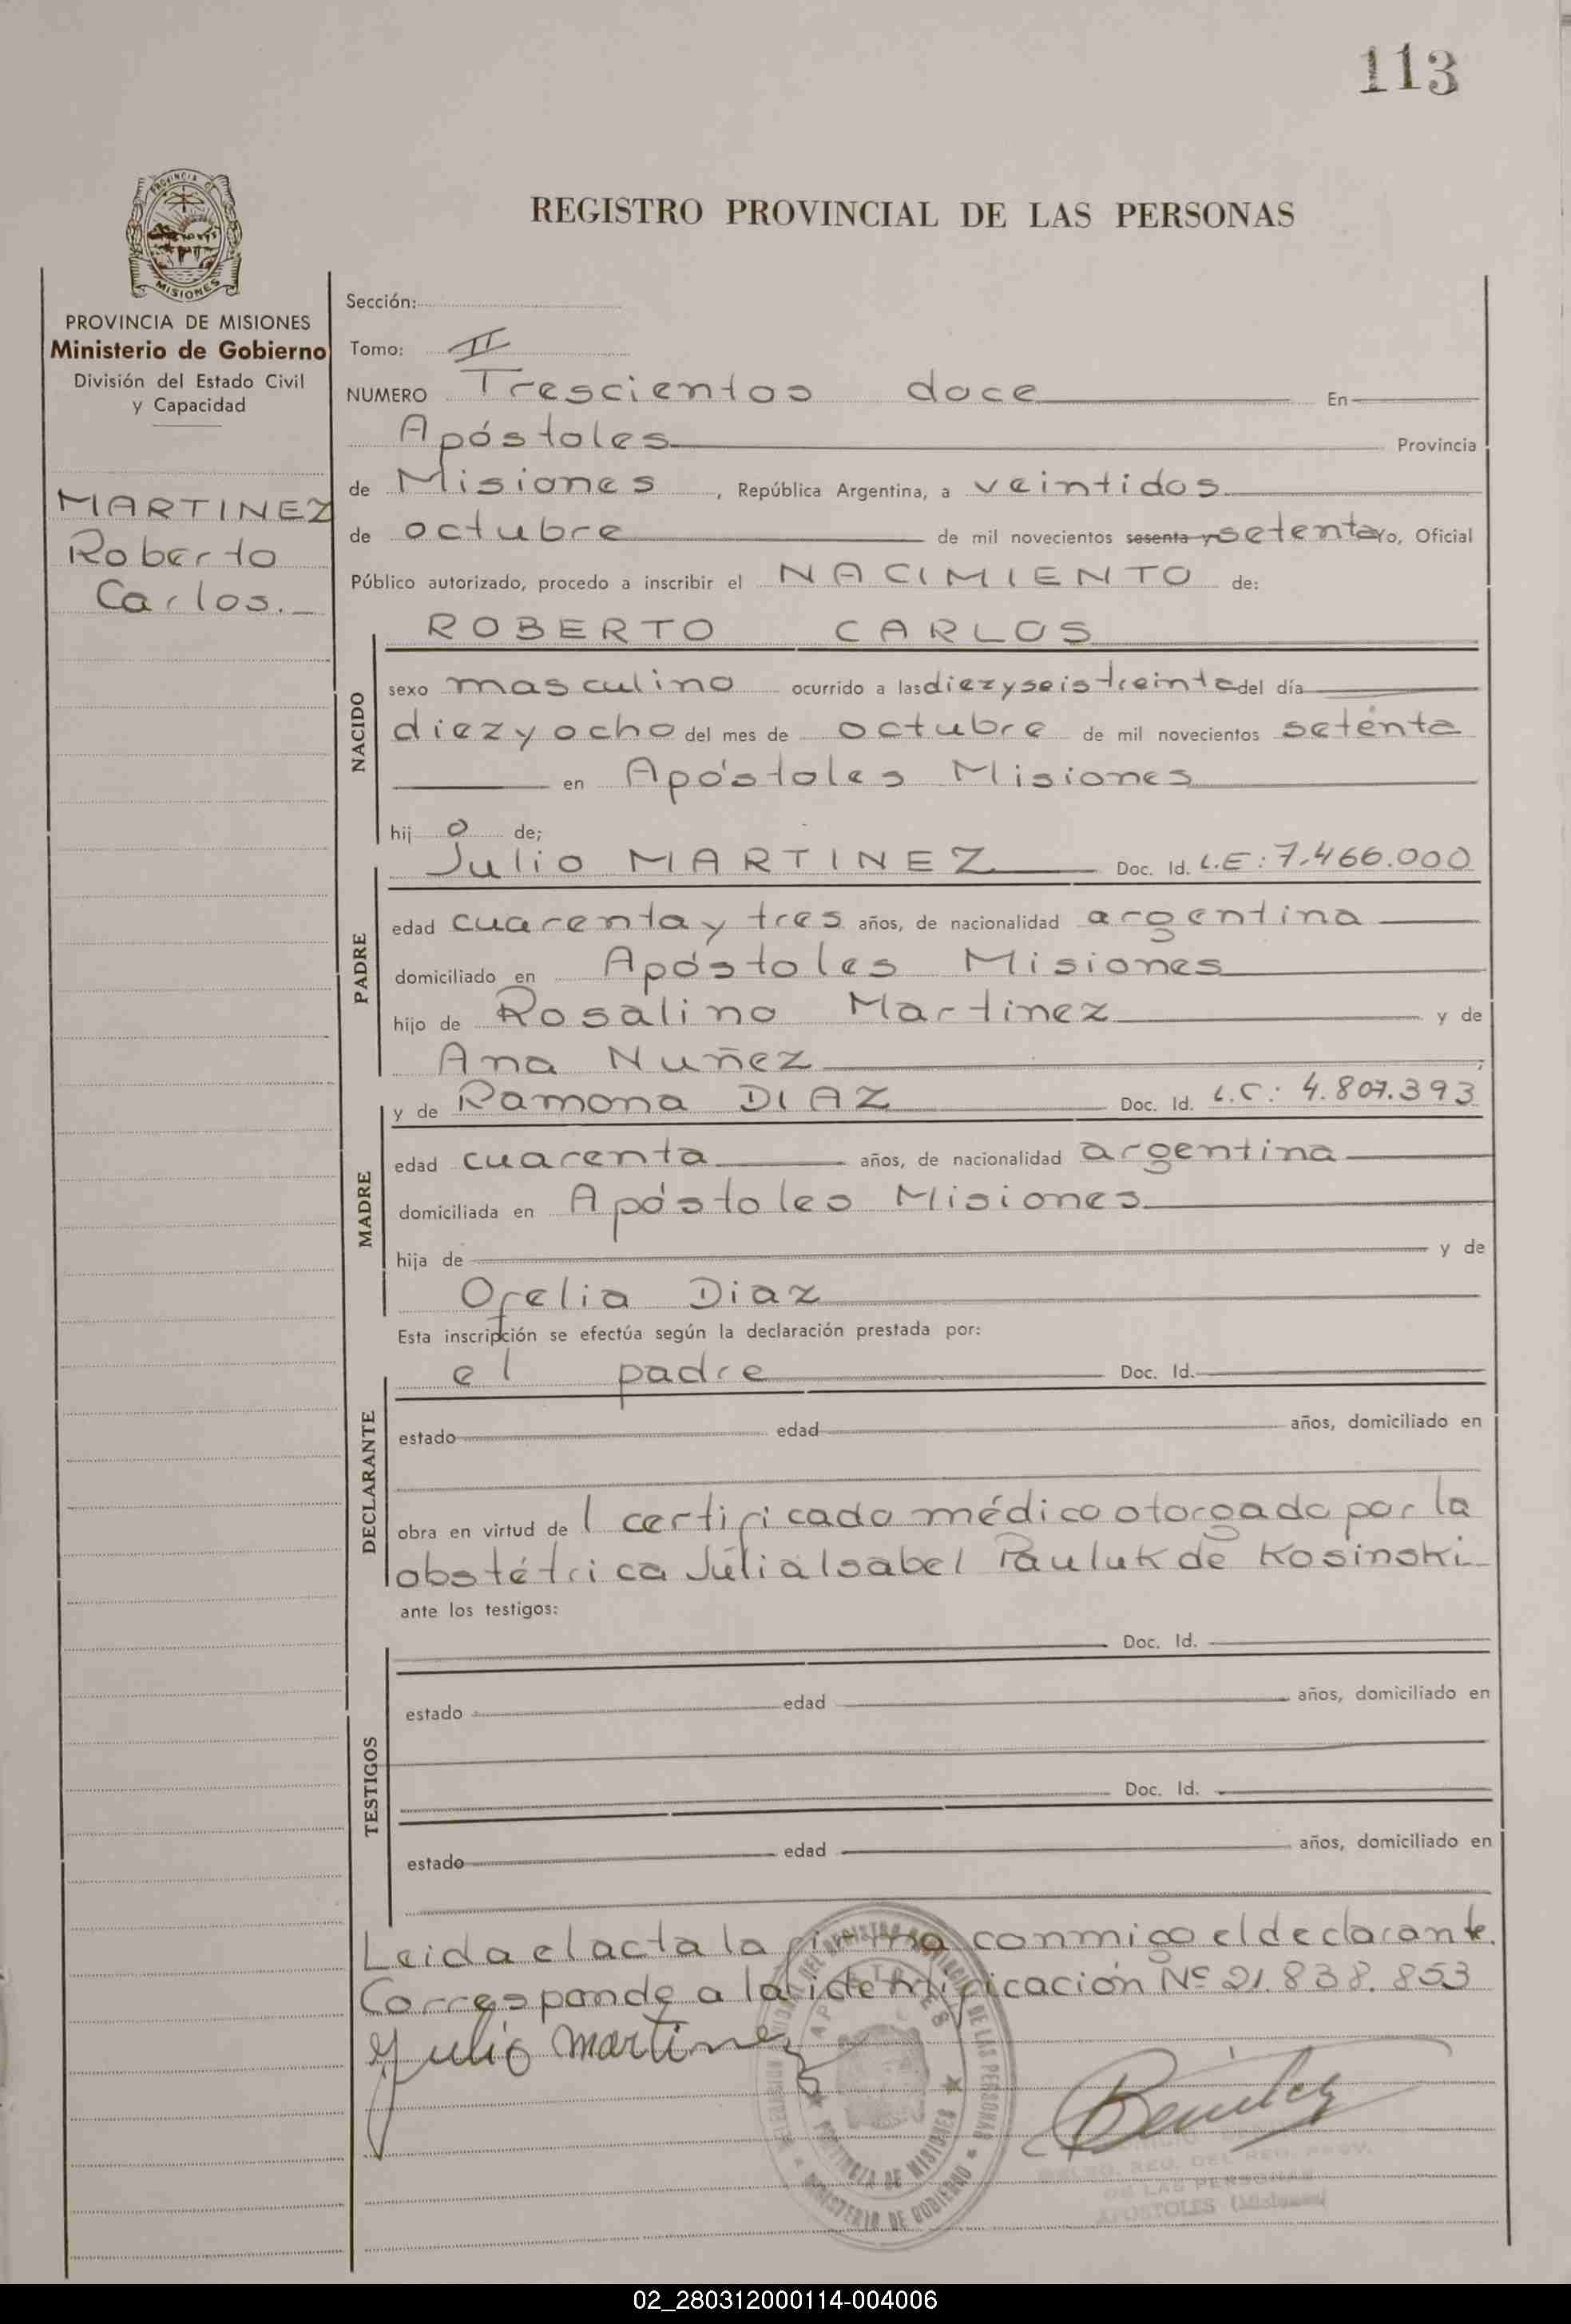 113
PROVINCIA DE
MISIONES
REGISTRO PROVINCIAL DE LAS PERSONAS
PROVINCIA DE MISIONES
Ministerio de Gobierno
División del Estado Civil
y Capacidad
MARTINEZ
Roberto
Carlos._
Sección:
Tomo: II
NUMERO Trescientos doce En
Apóstoles Provincia
de Misiones, República Argentina, a veintidos
de octubre de mil novecientos sesenta y setenta yo, Oficial
Público autorizado, procedo a inscribir el NACIMIENTO de:
ROBERTO CARLOS
NACIDO
sexo masculino ocurrido a las diezyseis treinta del día
diezyocho del mes de octubre de mil novecientos setenta
en Apóstoles Misiones
hijo de;
PADRE
Julio MARTINEZ Doc. Id. L.E: 7.466.000
edad cuarenta y tres años, de nacionalidad argentina
domiciliado en Apóstoles Misiones
hijo de Rosalino Martinez y de
Ana Nuñez ;
MADRE
y de Ramona DIAZ Doc. Id. L.C: 4.807.393
edad cuarenta años, de nacionalidad argentina
domiciliada en Apóstoles Misiones
hija de y de
Ofelia Diaz
Esta inscripción se efectúa según la declaración prestada por:
DECLARANTE
el padre Doc. Id.
estado edad años, domiciliado en
obra en virtud del certificado médico otorgado por la
obstétrica Julia Isabel Pauluk de Kosinski
ante los testigos:
TESTIGOS
Doc. Id.
estado edad años, domiciliado en
Doc. Id.
estado edad años, domiciliado en
Leida el acta la firma conmigo el declarante.
Corresponde a la identificación Nº 21.838.853
Julio Martinez
Benitez
APOSTOLES
PROVINCIA DE MISIONES
MINISTERIO DE GOBIERNO
DE LAS PERSONAS
REG. DEL REG. PROV.
DE LAS PERSONAS
APOSTOLES (Misiones)
02_280312000114-004006